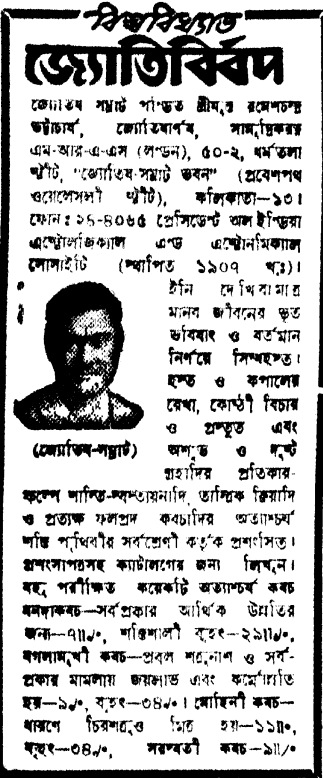 বিশ্ববিখ্যাত
জ্যোতির্ব্বিদ
জ্যোতিষ সম্রাট পণ্ডিত শ্রীযুক্ত রমেশচন্দ্র
ভট্টাচার্য, জ্যোতিষার্ণব, সামুদ্রিকরত্ন
এম-আর-এ-এস (লণ্ডন), ৫০-২, ধর্মতলা
স্ট্রীট, "জ্যোতিষ-সম্রাট ভবন" (প্রবেশপথ
ওয়েলেসলী স্ট্রীট), কলিকাতা—১৩।
ফোন: ২৪-৪০৬৫ প্রেসিডেন্ট অল ইণ্ডিয়া
এস্ট্রোলজিক্যাল এণ্ড এস্ট্রোনমিক্যাল
সোসাইটি (স্থাপিত ১৯০৭ খৃঃ)।
ইনি দেখিবামাত্র
মানব জীবনের ভূত
ভবিষ্যৎ ও বর্তমান
নির্ণয়ে সিদ্ধহস্ত।
হস্ত ও কপালের
রেখা, কোষ্ঠী বিচার
ও প্রস্তুত এবং
অশুভ ও দুষ্ট
(জ্যোতিষ-সম্রাট)
গ্রহাদির প্রতিকার-
কল্পে শান্তি-স্বস্ত্যয়নাদি, তান্ত্রিক ক্রিয়াদি
ও প্রত্যক্ষ ফলপ্রদ কবচাদির অত্যাশ্চর্য
শক্তি পৃথিবীর সর্বশ্রেণী কর্তৃক প্রশংসিত।
প্রশংসাপত্রসহ ক্যাটালগের জন্য লিখুন।
বহু পরীক্ষিত কয়েকটি অত্যাশ্চর্য কবচ
ধনদাকবচ—সর্বপ্রকার আর্থিক উন্নতির
জন্য—৭॥৵৹, শক্তিশালী বৃহৎ—২৯॥৵৹,
বগলামুখী কবচ—প্রবল শত্রুনাশ ও সর্ব-
প্রকার মামলায় জয়লাভ এবং কর্মোন্নতি
হয়—৯৵৹, বৃহৎ—৩৪৵৹। মোহিনী কবচ—
ধারণে চিরশত্রুও মিত্র হয়—১১॥৹,
বৃহৎ—৩৪৵৹, সরস্বতী কবচ—৯॥৵৹